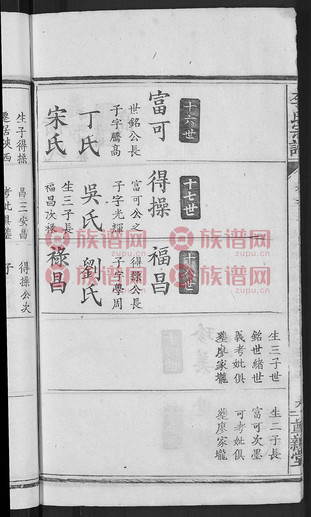 李氏宗譜
十六世
富可
世銘公長
子字騰高
丁氏
宋氏
十七世
得操
富可公之
子字光輝
吳氏
生三子長
福昌次祿
福昌
得操公長
子字學周
劉氏
祿昌
生三子世
銘世緒世
義考妣俱
塟廖家壠
生二子長
富可次墨
可考妣俱
塟廖家壠
生子得操
昌三安昌
得操公次
子
族谱网
zupu.cn
族谱网
zupu.cn
族谱网
zupu.cn